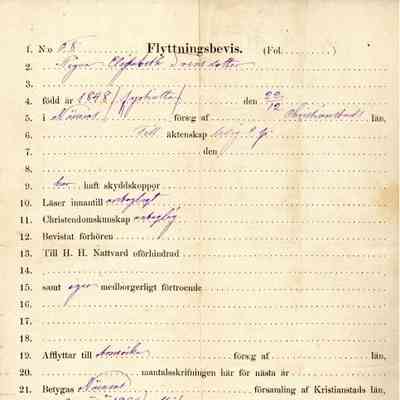 1. No 58. Flyttningsbevis. (Fol. )
2. Pigan Elisabeth Svensdotter
3.
4. född år 1848 den 22/12
5. i förs:g af Christianstads län,
6. Till äktenskap ledig
7. den
8.
9. har haft skyddskoppor
10. Läser innantill
11. Christendomskunskap
12. Bevistat förhören
13. Till H. H. Nattvard oförhindrad
14.
15. samt eger medborgerligt förtroende
16.
17.
18.
19. Afflyttar till Amerika förs:g af län,
20. mantalsskrifningen här för nästa år
21. Betygas församling af Kristianstads län,